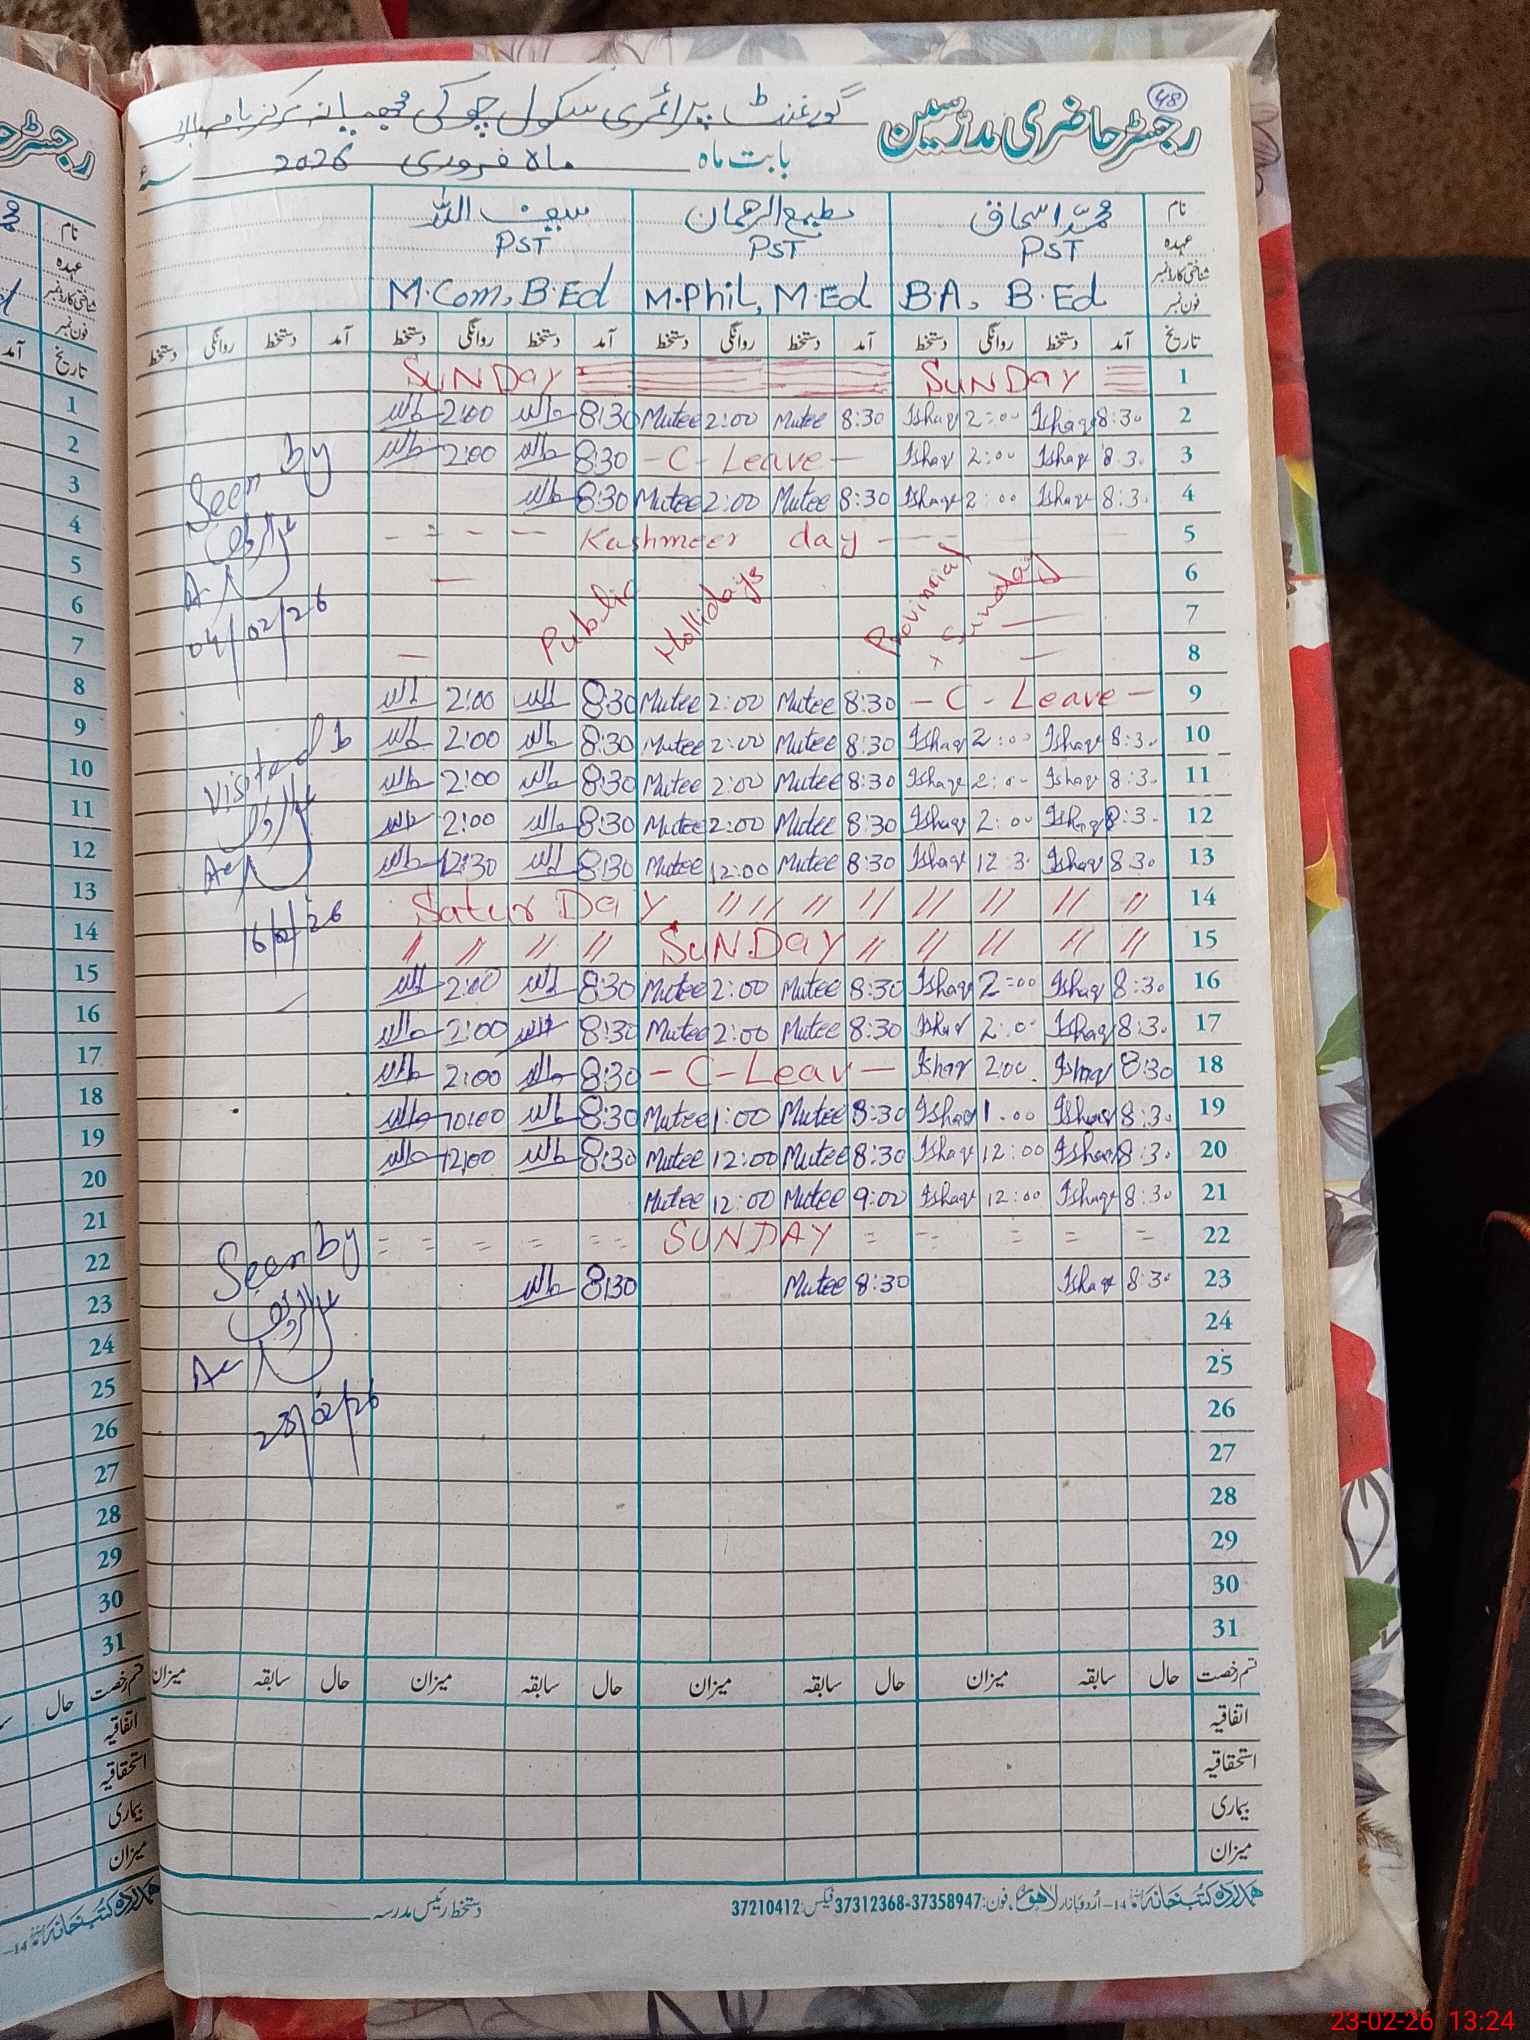 48
رجسٹر حاضری مدرسین
گورنمنٹ پرائمری سکول چوکی
بابت ماہ ماہ فروری 2026
نام محمد اسحاق مطیع الرحمان سیف اللہ
عہدہ PST PST PST
شناختی کارڈ نمبر
فون نمبر B.A, B.Ed M.Phil, M.Ed M.Com, B.Ed
تاریخ آمد دستخط روانگی دستخط آمد دستخط روانگی دستخط آمد دستخط روانگی دستخط آمد دستخط روانگی دستخط
1 SUNDAY SUNDAY
2 8:30 Ishaq 2:00 Ishaq 8:30 Mutee 2:00 Mutee 8:30 2:00
3 8:3. Ishaq 2:00 Ishaq - C - Leave - 8:30 2:00
4 8:3. Ishaq 2:00 Ishaq 8:30 Mutee 2:00 Mutee 8:30
5 Kashmeer day
6
7
8
Public Hollidays Provinnial + Sunday
9 - C - Leave - 8:30 Mutee 2:00 Mutee 8:30 2:00
10 8:3. Ishaq 2:00 Ishaq 8:30 Mutee 2:00 Mutee 8:30 2:00
11 8:3. Ishaq 2:00 Ishaq 8:30 Mutee 2:00 Mutee 8:30 2:00
12 8:3. Ishaq 2:00 Ishaq 8:30 Mutee 2:00 Mutee 8:30 2:00
13 8:30 Ishaq 12:3. Ishaq 8:30 Mutee 12:00 Mutee 8:30 12:30
14 Satur Day // // // // // // // //
15 // // // // SUN.DAY // // // // //
16 8:30 Ishaq 2:00 Ishaq 8:30 Mutee 2:00 Mutee 8:30 2:00
17 8:3. Ishaq 2:00 Ishaq 8:30 Mutee 2:00 Mutee 8:30 2:00
18 8:30 Ishaq 2:00 Ishaq - C - Leav - 8:30 2:00
19 8:3. Ishaq 1:00 Ishaq 8:30 Mutee 1:00 Mutee 8:30
20 8:3. Ishaq 12:00 Ishaq 8:30 Mutee 12:00 Mutee 8:30 12:00
21 8:30 Ishaq 12:00 Ishaq 9:00 Mutee 12:00 Mutee
22 SUNDAY
23 8:30 Ishaq 8:30 Mutee 8:30
24
25
26
27
28
29
30
31
Seen by
04/02/26
Visited b
16/2/26
Seen by
23/02/26
قسم رخصت حال سابقہ میزان حال سابقہ میزان حال سابقہ میزان حال سابقہ میزان
اتفاقیہ
استحقاقیہ
بیماری
میزان
دستخط رئیس مدرسہ
ہمدرد کتب خانہ 14-اردو بازار لاہور، فون: 37358947-37312368 فیکس: 37210412
رجسٹر
نام
عہدہ
شناختی کارڈ نمبر
فون نمبر
تاریخ آمد
1
2
3
4
5
6
7
8
9
10
11
12
13
14
15
16
17
18
19
20
21
22
23
24
25
26
27
28
29
30
31
قسم رخصت حال
اتفاقیہ
استحقاقیہ
بیماری
میزان
ہمدرد کتب خانہ 14-
23-02-26 13:24